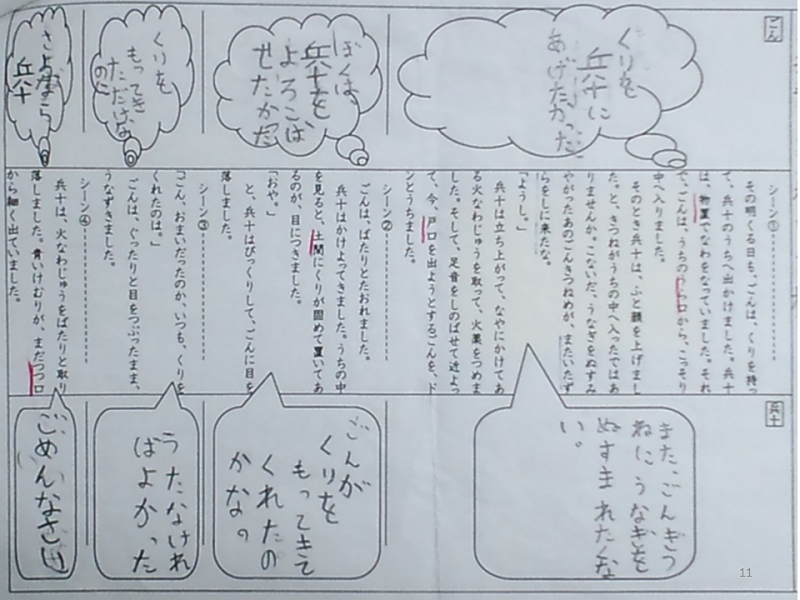 ごん
くりを
兵十に
あげたかった。
ぼくは、
兵十を
よろこば
せたかだ
くりを
もってき
ただけな
のに
さよなら
兵十
シーン①
その明くる日も、ごんは、くりを持っ
て、兵十のうちへ出かけました。兵十
は、物置でなわをなっていました。それ
で、ごんは、うちのうら口から、こっそり
中へ入りました。
そのとき兵十は、ふと顔を上げまし
た。と、きつねがうちの中へ入ったではあ
りませんか。こないだ、うなぎをぬすみ
やがったあのごんぎつねめが、またいたず
らをしに来たな。
「ようし。」
兵十は立ち上がって、なやにかけてあ
る火なわじゅうを取って、火薬をつめま
した。そして、足音をしのばせて近よっ
て、今、戸口を出ようとするごんを、ド
ンとうちました。
シーン②
ごんは、ばたりとたおれました。
兵十はかけよってきました。うちの中
を見ると、土間にくりが固めて置いてあ
るのが、目につきました。
「おや。」
と、兵十はびっくりして、ごんに目を
落しました。
シーン③
「ごん、おまいだったのか、いつも、くりを
くれたのは。」
ごんは、ぐったりと目をつぶったまま、
うなずきました。
シーン④
兵十は、火なわじゅうをばたりと取り
落しました。青いけむりが、まだつつ口
から細く出ていました。
兵十
また、ごんぎつ
ねにうなぎを
ぬすまれたくな
い。
ごんが
くりを
もってきて
くれたの
かな。
うたなけれ
ばよかった
ごめんなさい
11